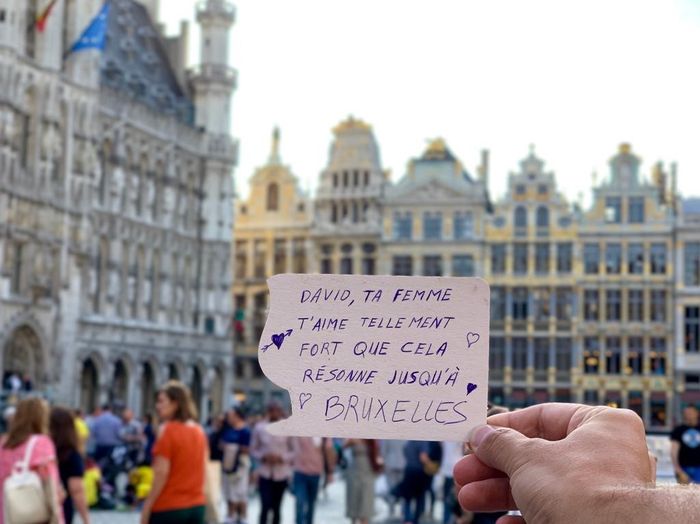 DAVID, TA FEMME
T'AIME TELLEMENT
FORT QUE CELA
RÉSONNE JUSQU'À
BRUXELLES